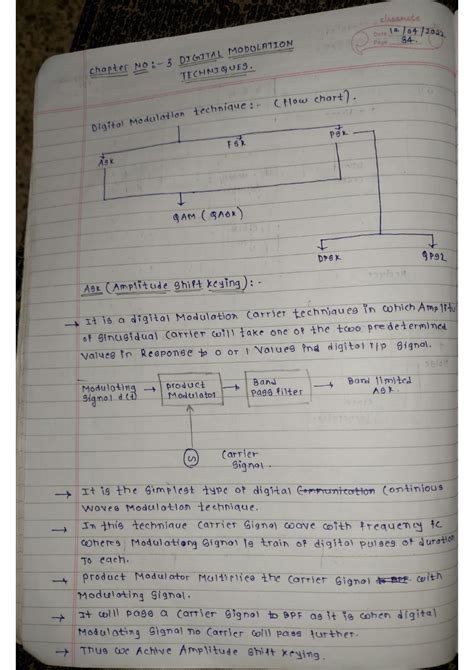 classmate
Date 12/04/2022
Page 84
Chapter NO:- 3 DIGITAL MODULATION
TECHNIQUES.
Digital Modulation technique:- (flow chart).
ASK
FSK
PSK
QAM (QASK)
DPSK
QPSK
ASK (Amplitude Shift Keying):-
→ It is a digital Modulation Carrier techniques in which Amplitu
of Sinusidal Carrier will take one of the two predetermined
values in Response to 0 or 1 Values in digital i/p Signal.
Modulating
Signal d(t)
Product
Modulator
Band
pass filter
Band limited
ASK.
Carrier
Signal.
→ It is the Simplest type of digital Communication Continious
waves Modulation technique.
→ In this technique Carrier Signal wave with frequency fc
wheres Modulationg Signal is train of digital pulses of duration
To each.
→ Product Modulator Multiplies the Carrier Signal to BPF with
Modulating Signal.
→ It will pass a Carrier Signal to BPF as it is when digital
Modulating Signal no Carrier will pass further.
→ Thus we Achive Amplitude Shift Keying.